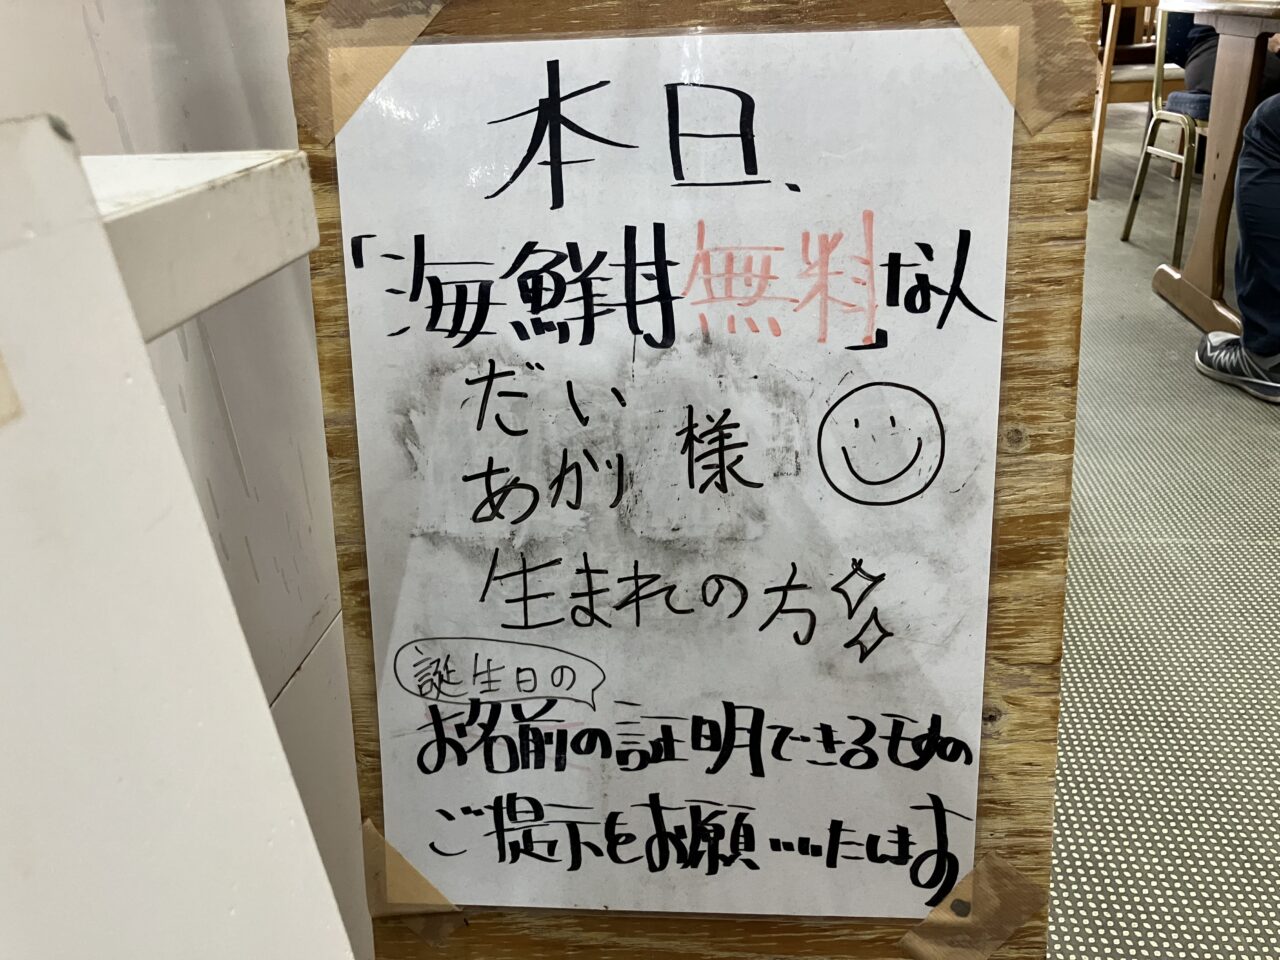 本日、
「海鮮丼無料」な人
だい
あかり 様
生まれの方
誕生日の
お名前の証明できるものの
ご提示をお願いいたします